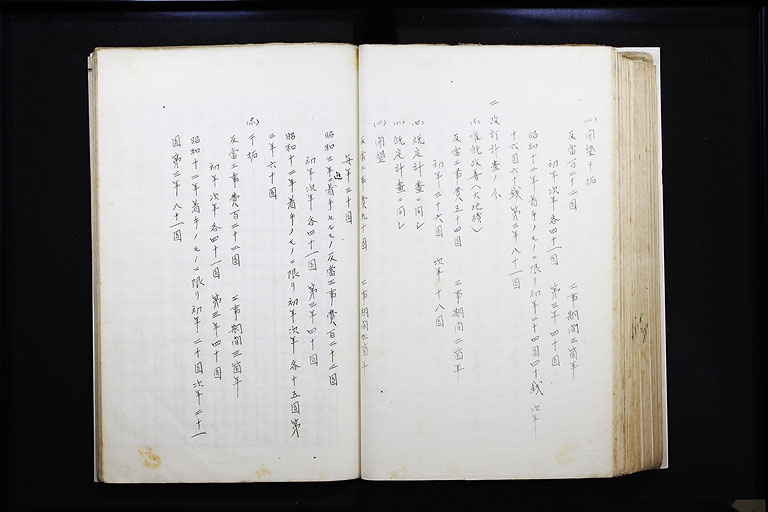 (二) 開墾干拓
反當百二十二圓 工事期間三箇年
初年次年各四十一圓 第三年四十圓
昭和十二年着手ノモノニ限リ初年二十四圓四十錢 次年
十六圓六十錢 第三年八十一圓
二 改訂計畫ノ分
(イ) 灌漑改善(土地擴)
反當工事費五十四圓 工事期間二箇年
初年三十六圓 次年十八圓
(ロ) 既定計畫ニ同シ
(ハ) 既定計畫ニ同シ
(二) 開墾
反當工事費九十圓 工事期間三箇年
每年三十圓
昭和三年迄着手セルモノ反當工事費百二十二圓
初年次年各四十一圓 第三年四十圓
昭和十二年着手ノモノニ限リ初年次年各十五圓第
三年六十圓
(ホ) 干拓
反當工事費百二十二圓 工事期間三箇年
初年次年各四十一圓 第三年四十圓
昭和十二年着手ノモノニ限リ初年二十圓次年二十一
圓第三年八十一圓